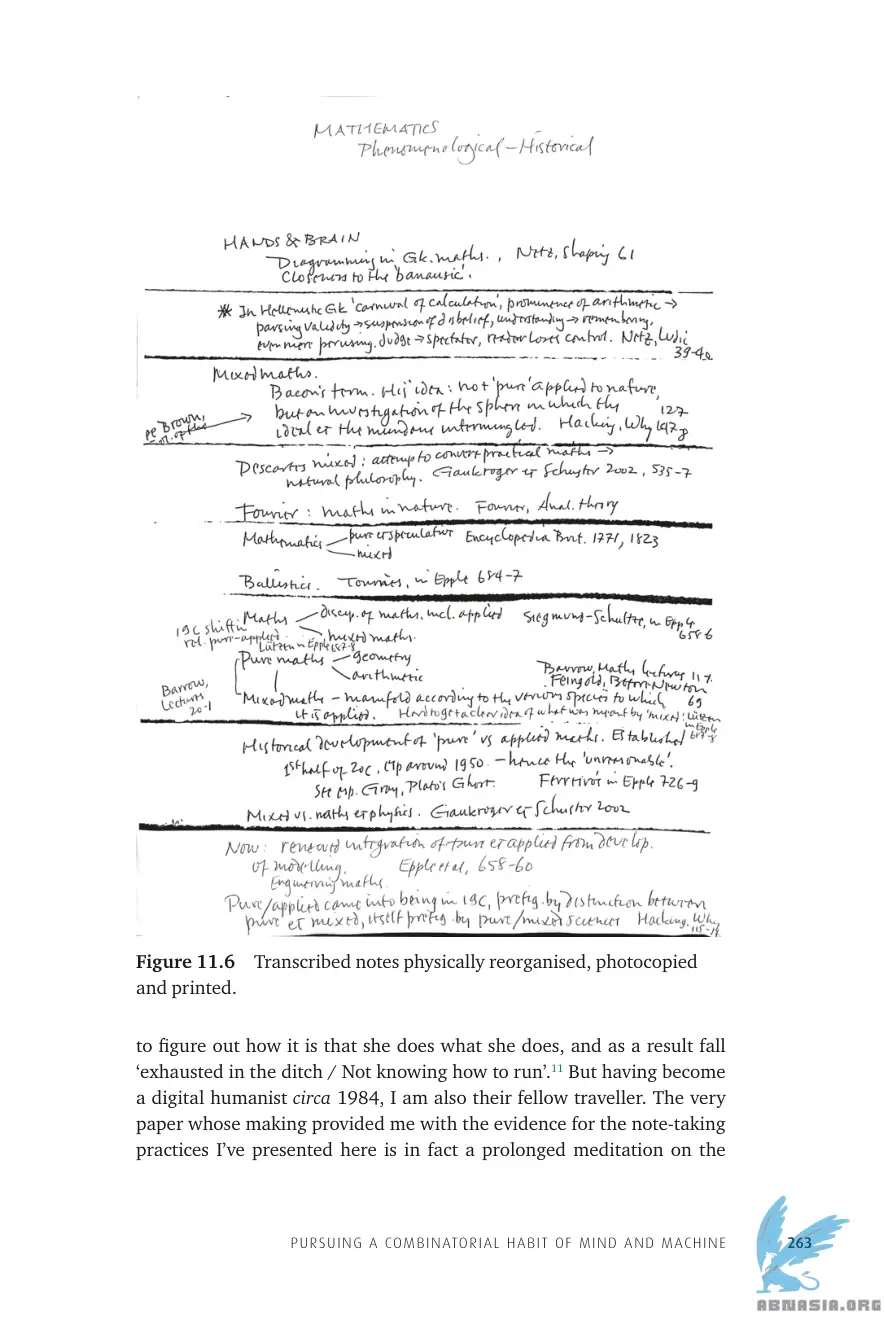 MATHEMATICS
Phenomenological – Historical
HANDS & BRAIN
Diagramming in Gk. maths. , Netz, Shaping 61
Closeness to the 'banausic'.
* In Hellenistic Gk 'carnival of calculation', prominence of arithmetic →
parsing validity → suspension of disbelief, understanding → remembering,
even mere perusing. Judge → spectator, reader loses control. Netz, Ludic
39-40
Mixed maths.
Bacon's term. His idea: not 'pure' applied to nature,
but an investigation of the sphere in which the 127
ideal et the mundane intermingled. Hacking, Why 147, 8
Brown,
Descartes mixed: attempt to convert practical maths →
natural philosophy. Gaukroger et Schuster 2002, 535-7
Fourier : maths in nature. Fourier, Anal. theory
Mathematics – pure et speculative Encyclopedia Brit. 1771, 1823
– mixed
Ballistics. Tournès, in Epple 684-7
19C shift in
rel. pure-applied.
Lützen in Epple
Maths – discip. of maths, incl. applied Siegmund-Schultze, in Epple
658-6
mixed maths.
Pure maths – geometry
arithmetic
Barrow, Maths lectures
Feingold, Before Newton
69
Barrow,
Lectures
20-1
Mixed maths – manifold according to the various species to which
it is applied. Hard to get a clear idea of what was meant by 'mixed': Lützen
in Epple
Historical development of 'pure' vs applied maths. Established
1st half of 20C, up around 1950. – hence the 'unreasonable'.
See esp. Gray, Plato's Ghost. Ferreirós in Epple 726-9
Mixed vs. maths et physics. Gaukroger et Schuster 2002
Now: renewed integration of pure et applied from develop.
of modelling. Epple et al, 658-60
Engineering maths.
Pure/applied came into being in 19C, prefig. by distinction between
pure et mixed, itself prefig. by pure/mixed sciences Hacking, Why
115-
Figure 11.6 Transcribed notes physically reorganised, photocopied
and printed.
to figure out how it is that she does what she does, and as a result fall
‘exhausted in the ditch / Not knowing how to run’.11 But having become
a digital humanist circa 1984, I am also their fellow traveller. The very
paper whose making provided me with the evidence for the note-taking
practices I’ve presented here is in fact a prolonged meditation on the
PURSUING A COMBINATORIAL HABIT OF MIND AND MACHINE 263
ABNASIA.ORG